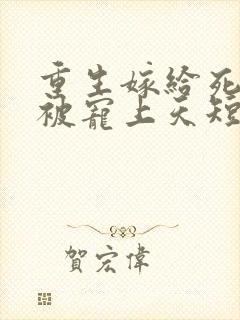 重生嫁给死
被寵上天短
賀宏偉